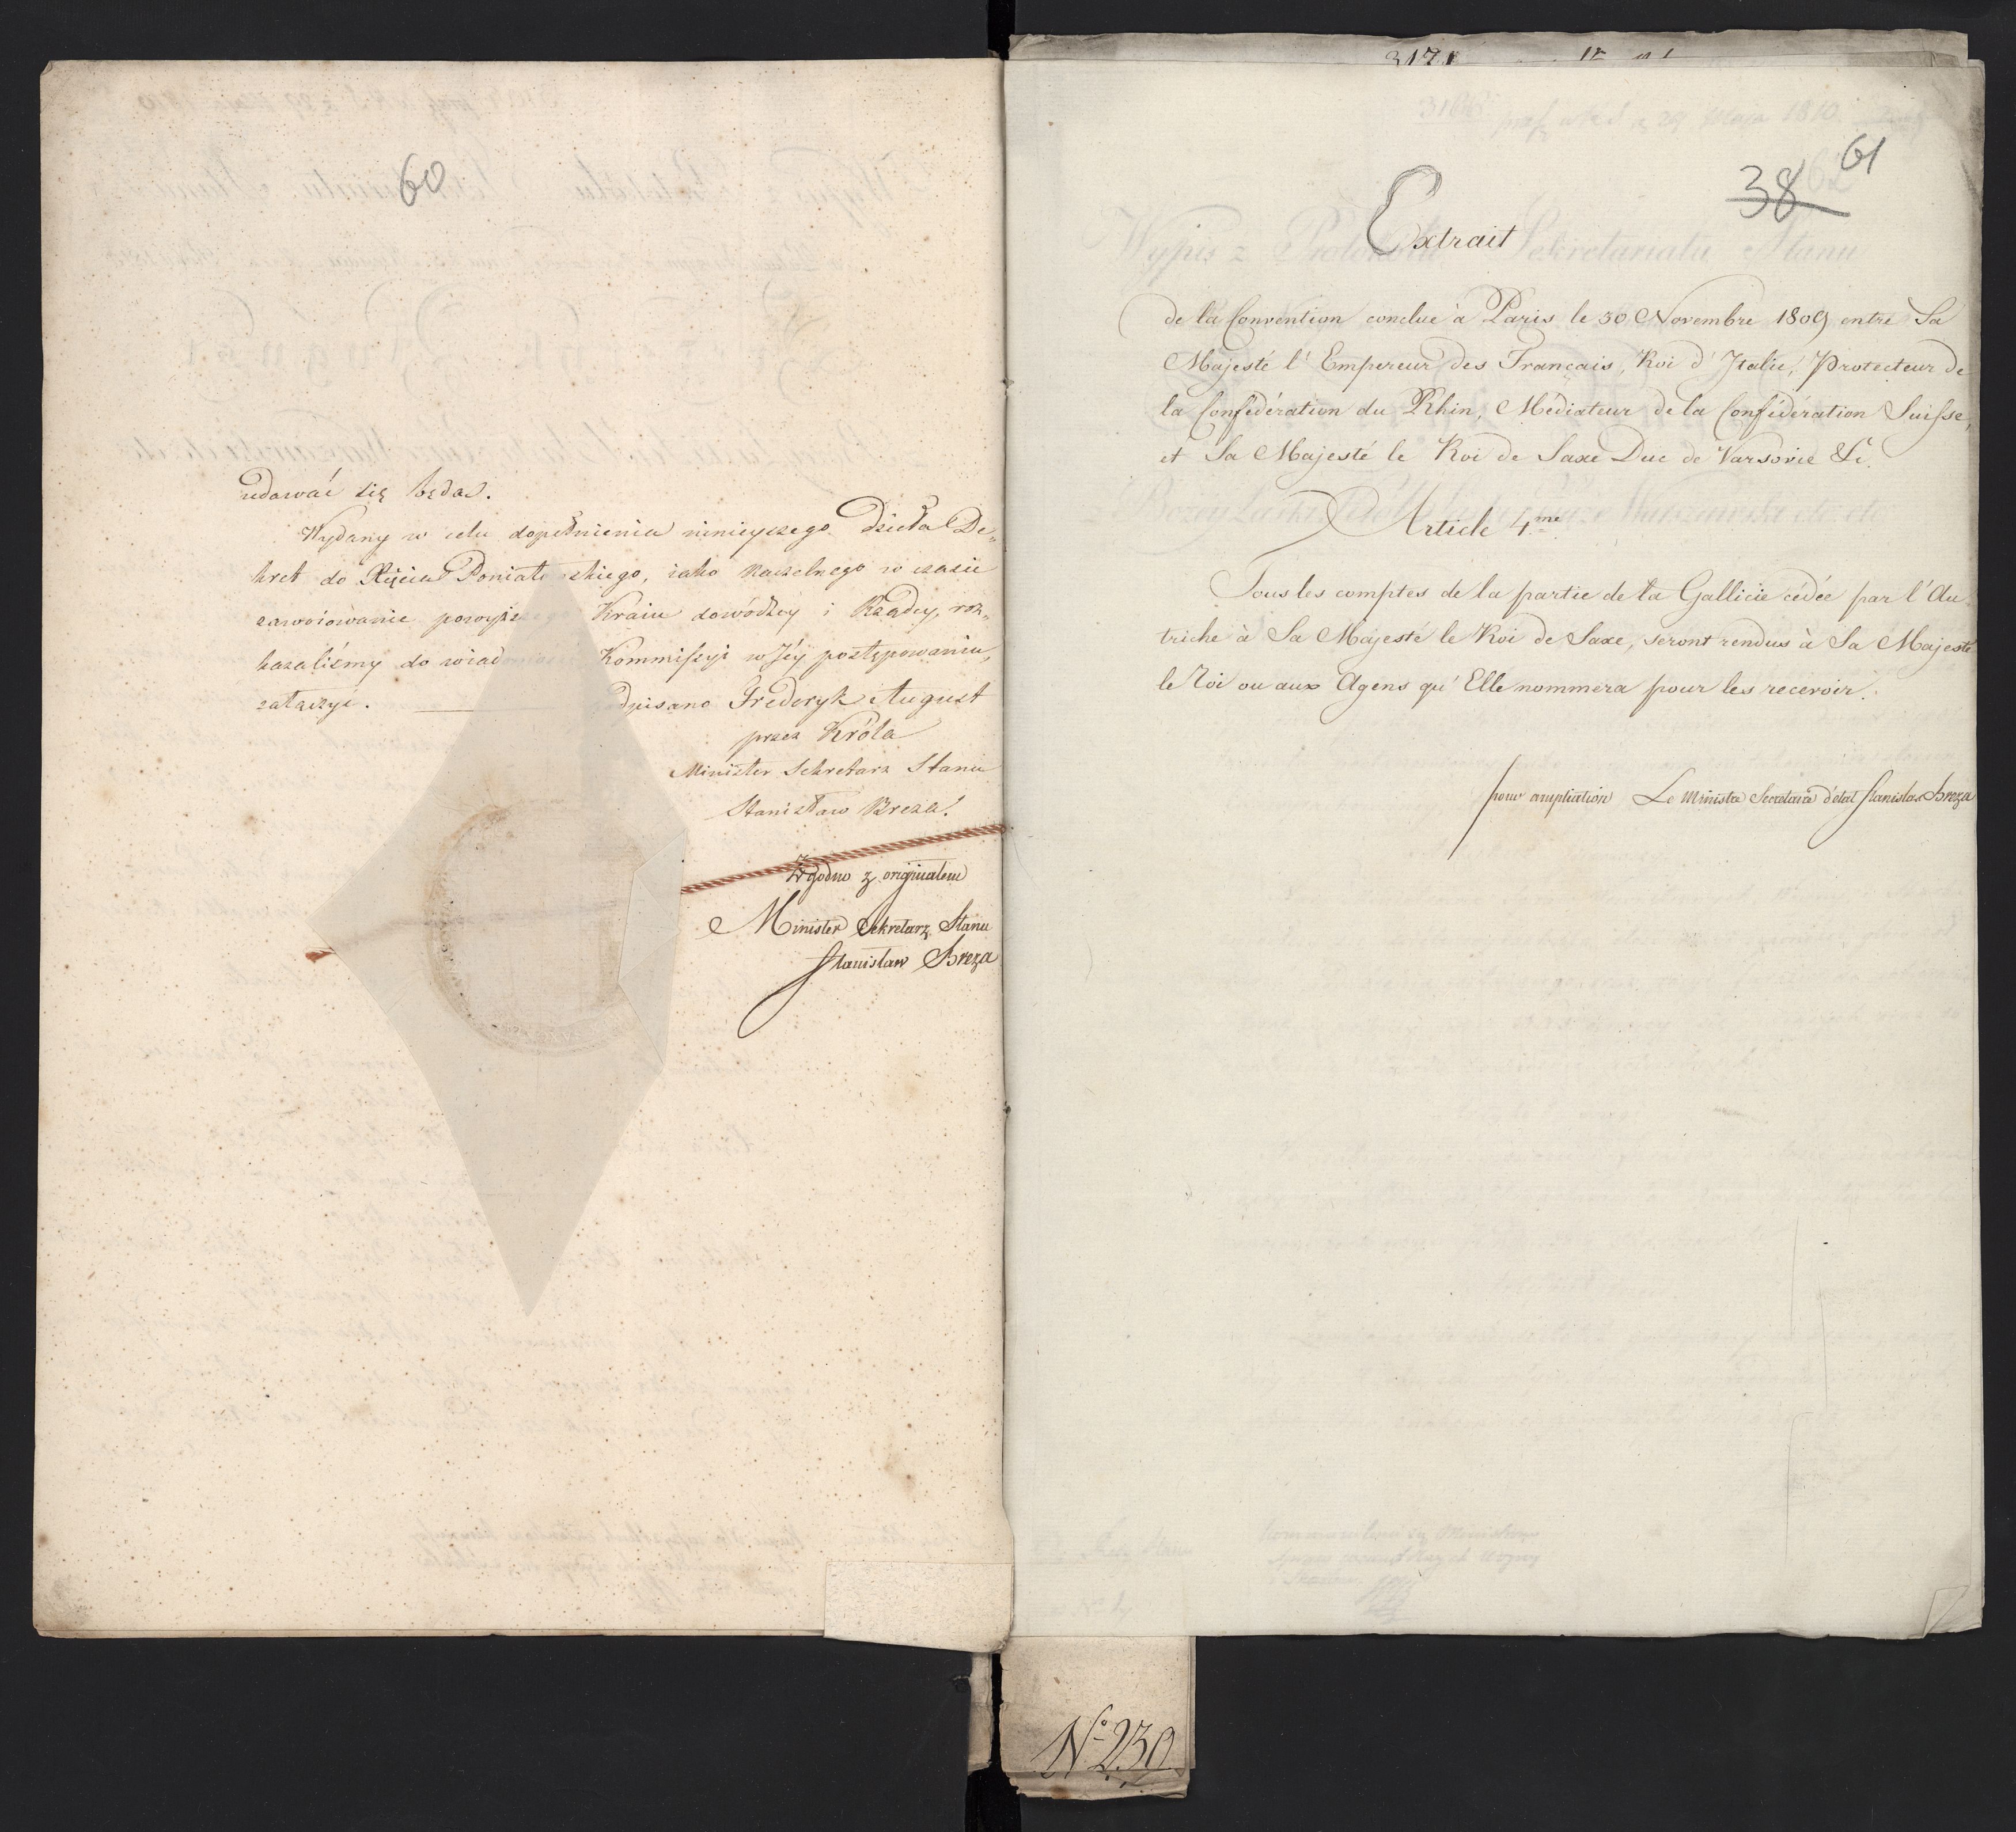 60
udawać się będą.
Wydany w celu dopełnienia ninieyszego dzieła De„
kret do Xięcia Poniatowskiego, iako naczelnego w czasie
zawoiowania powyższego Kraiu dowódzcy i Rządcy, roz„
kazaliśmy do wiadomości Kommissyi w Jéy postępowaniu,
załączyć. podpisano Frederyk August
przez Króla
Minister Sekretarz Stanu
Stanisław Breza.
Zgodno z originałem
Minister Sekretarz Stanu
Stanisław Breza
3171
61
38
Extrait
de la Convention conclue à Paris le 30 Novembre 1809 entre Sa
Majesté l'Empereur des Français, Roi d'Italie, Protecteur de
la Confédération du Rhin, Médiateur de la Confédération Suisse,
et Sa Majesté le Roi de Saxe Duc de Varsovie &c.
Article 4.me
Tous les comptes de la partie de la Gallicie cédée par l'Au
triche à Sa Majesté le Roi de Saxe, seront rendus à Sa Majesté
le Roi ou aux Agens qu'Elle nommera pour les recevoir.
pour ampliation Le Ministre Secretaire d'état Stanislas Breza
No 230